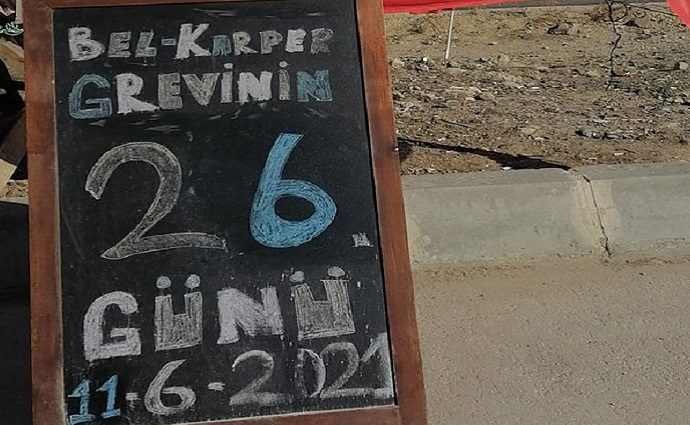 BEL-KARPER
GREVİNİN
26.
GÜNÜ
11-6-2021